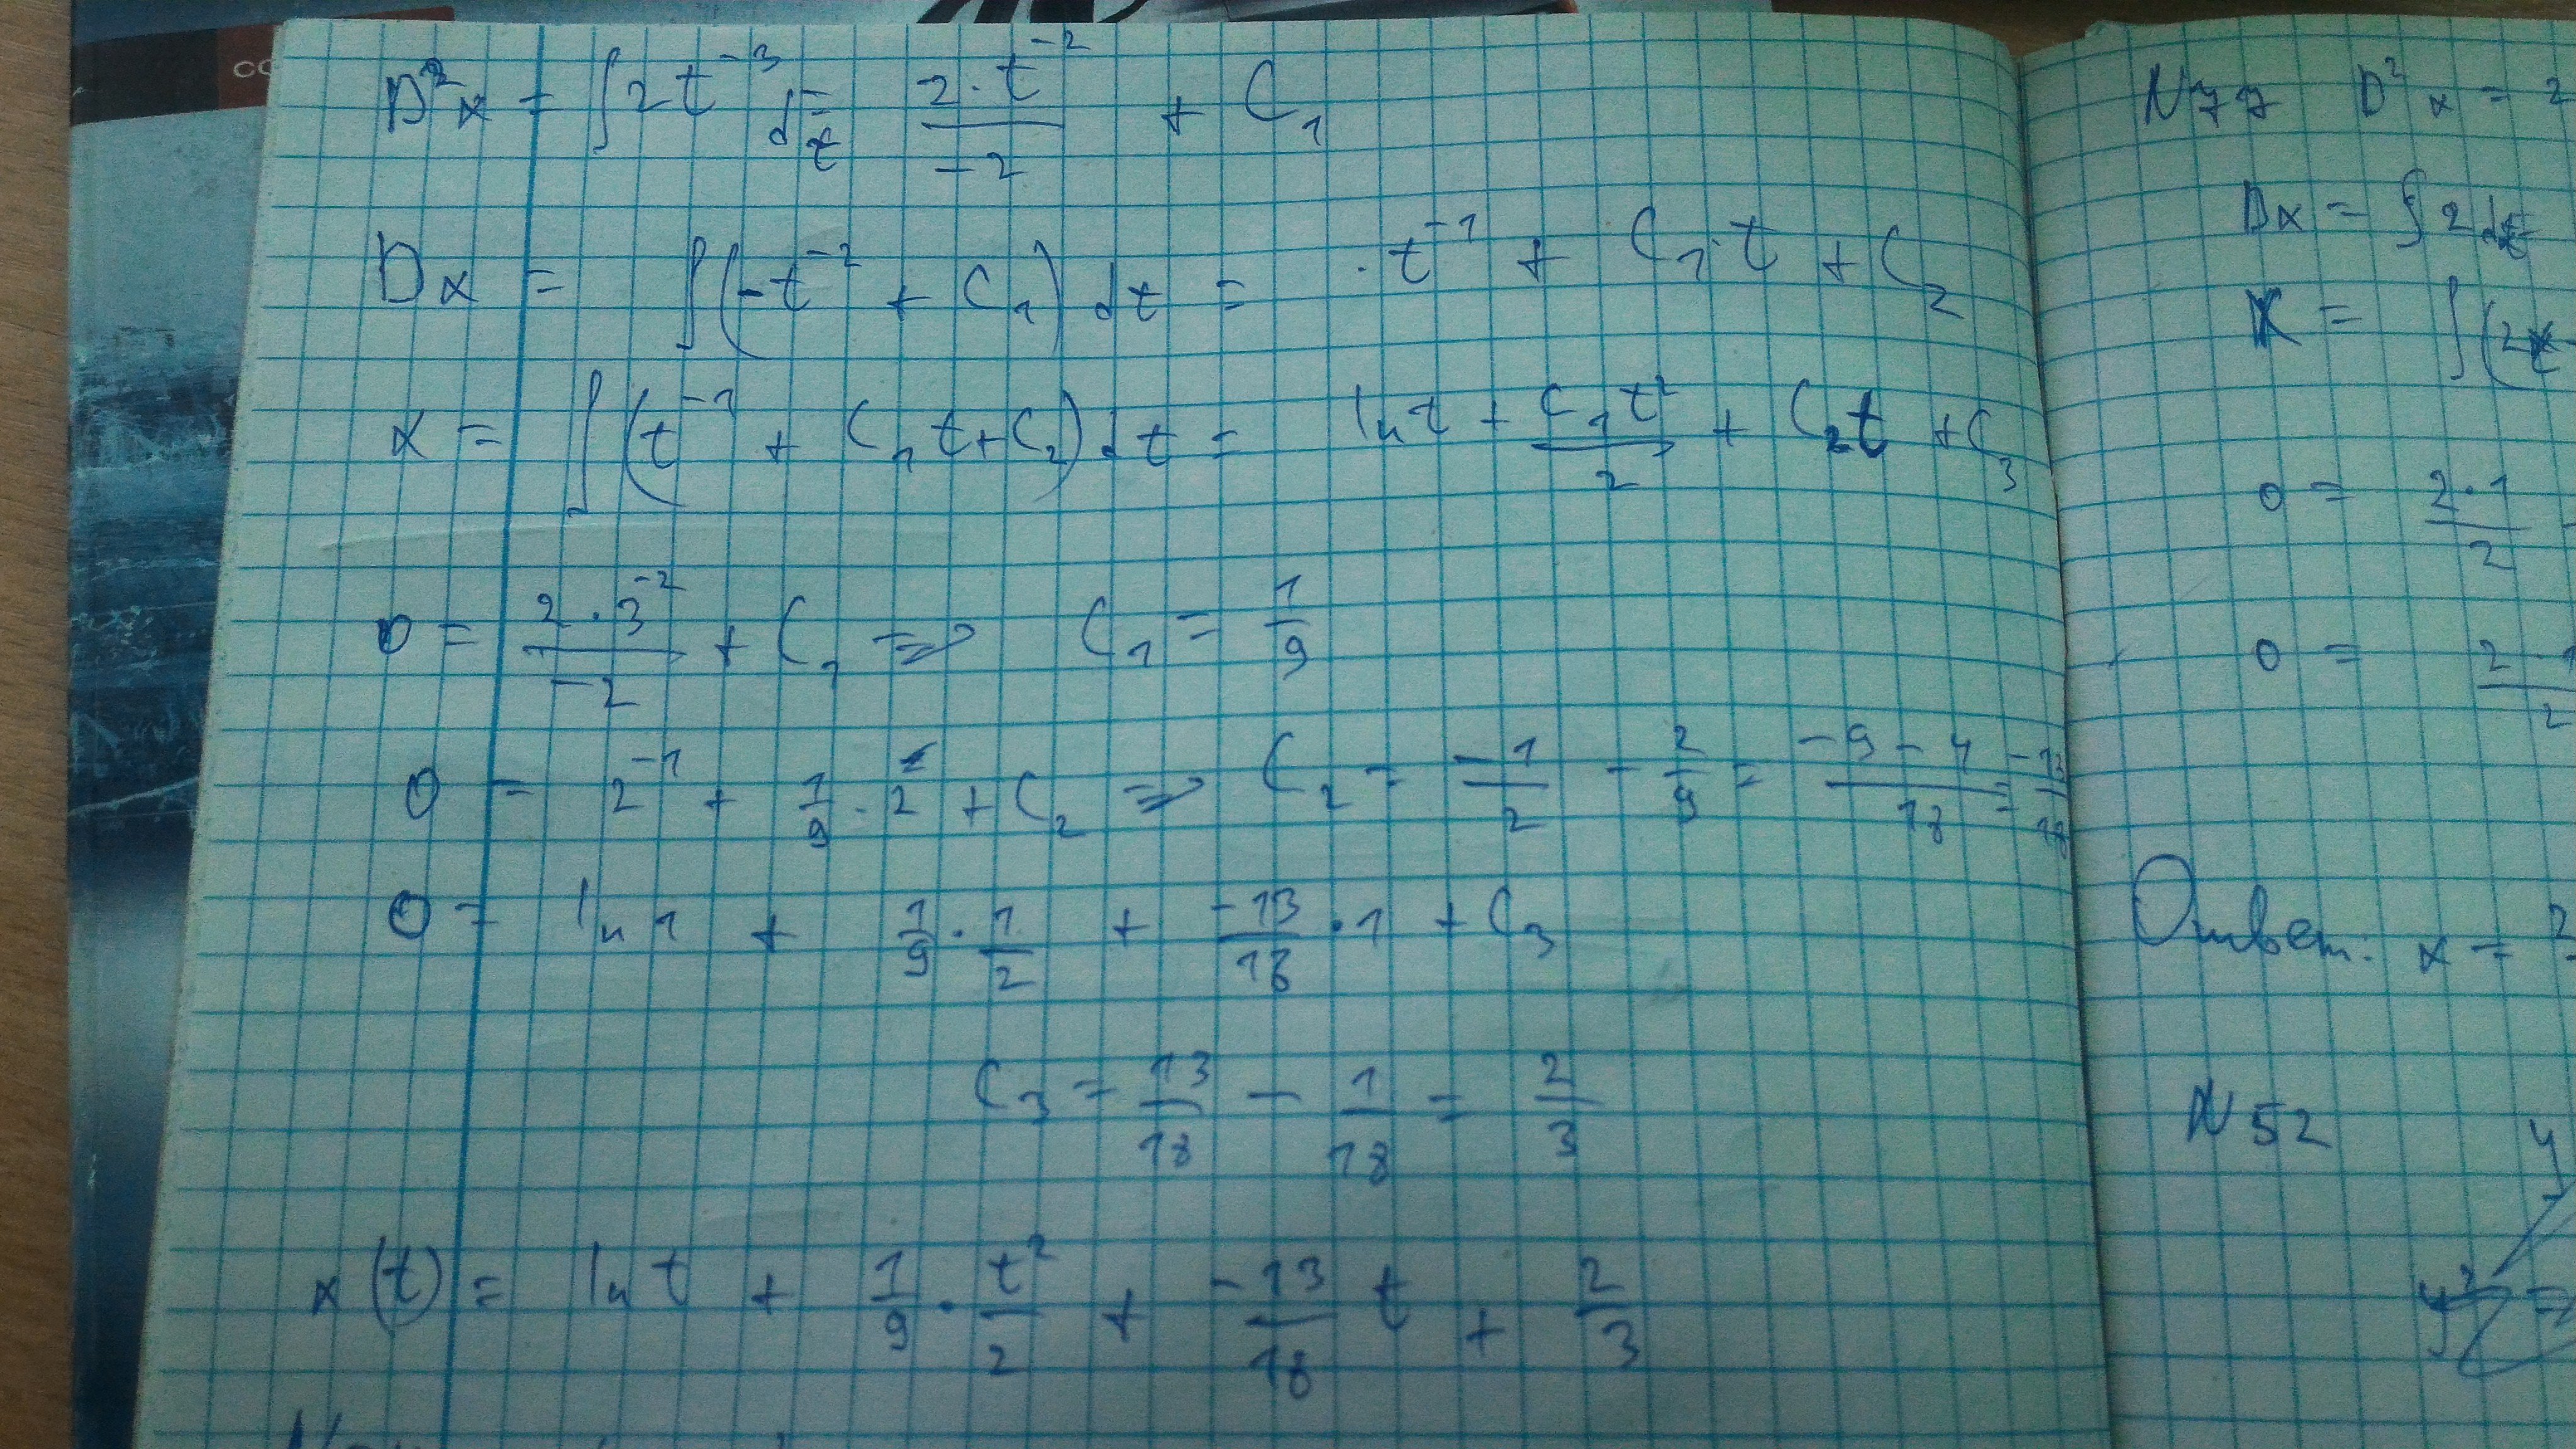 CO
D²x = ∫ 2t⁻³ dt = (2·t⁻²)/(-2) + C₁
Dx = ∫(-t⁻² + C₁) dt = t⁻¹ + C₁·t + C₂
x = ∫(t⁻¹ + C₁t + C₂) dt = ln t + (C₁t²)/2 + C₂t + C₃
0 = (2·3⁻²)/(-2) + C₁ => C₁ = 1/9
0 = 2⁻¹ + 1/9 · 2 + C₂ => C₂ = -1/2 - 2/9 = (-9-4)/18 = -13/18
0 = ln 1 + 1/9 · 1/2 + -13/18 · 1 + C₃
C₃ = 13/18 - 1/18 = 2/3
x(t) = ln t + 1/9 · t²/2 + -13/18 t + 2/3
N77 D²x = 2
Dx = ∫ 2 dt
x = ∫(2t
0 = 2·1/2
0 = 2·1/2
Ответ: x = 2
N 52
y